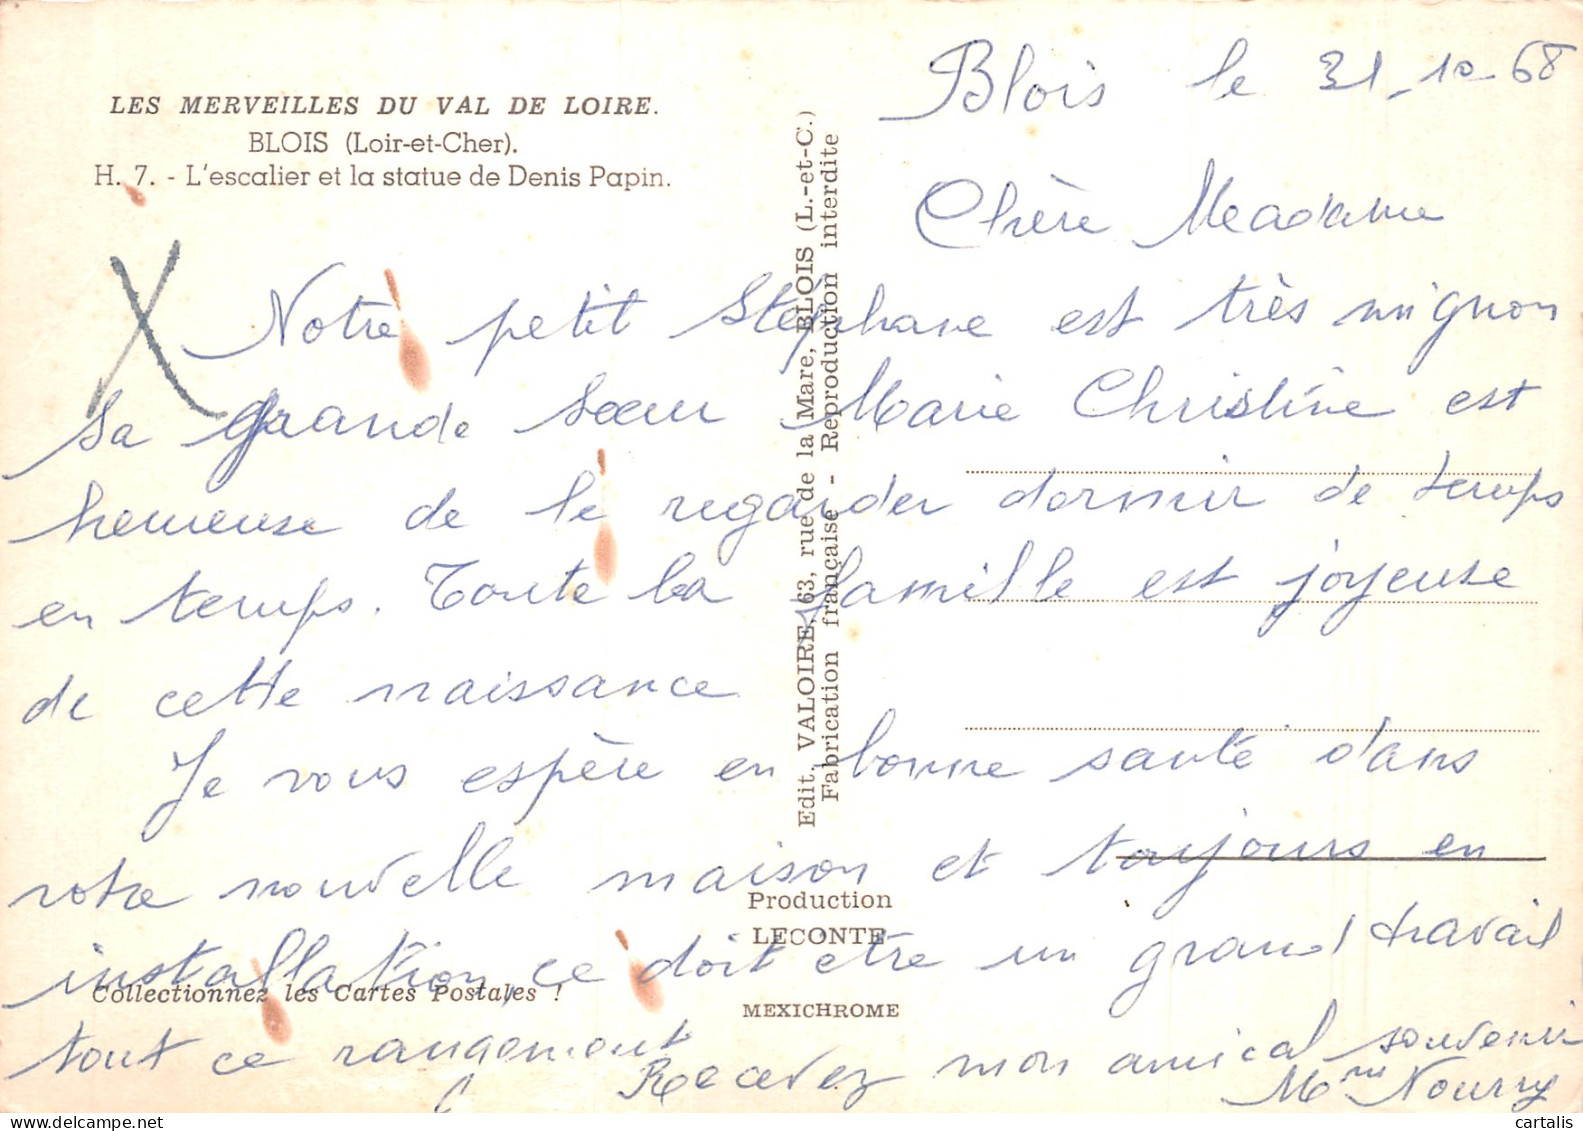 LES MERVEILLES DU VAL DE LOIRE.
BLOIS (Loir-et-Cher).
H. 7. - L'escalier et la statue de Denis Papin.
Blois le 31-10-68
Chère Meadame
Notre petit Stéphane est très mignon
Sa grande soeur Marie Christine est
heureuse de le regarder dormir de temps
en temps. Toute la famille est joyeuse
de cette naissance
Je vous espère en bonne santé dans
votre nouvelle maison et toujours en
installation, ce doit etre un grand travail
tout ce rangement
Recevez mon amical souvenir
Mme Nourry
Edit. VALOIRE, 63, rue de la Mare, BLOIS (L.-et-C.)
Fabrication française - Reproduction interdite
Production
LECONTE
MEXICHROME
Collectionnez les Cartes Postales !
cartalis